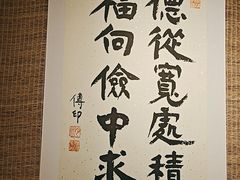 德從寬處積
福向儉中求
傳印